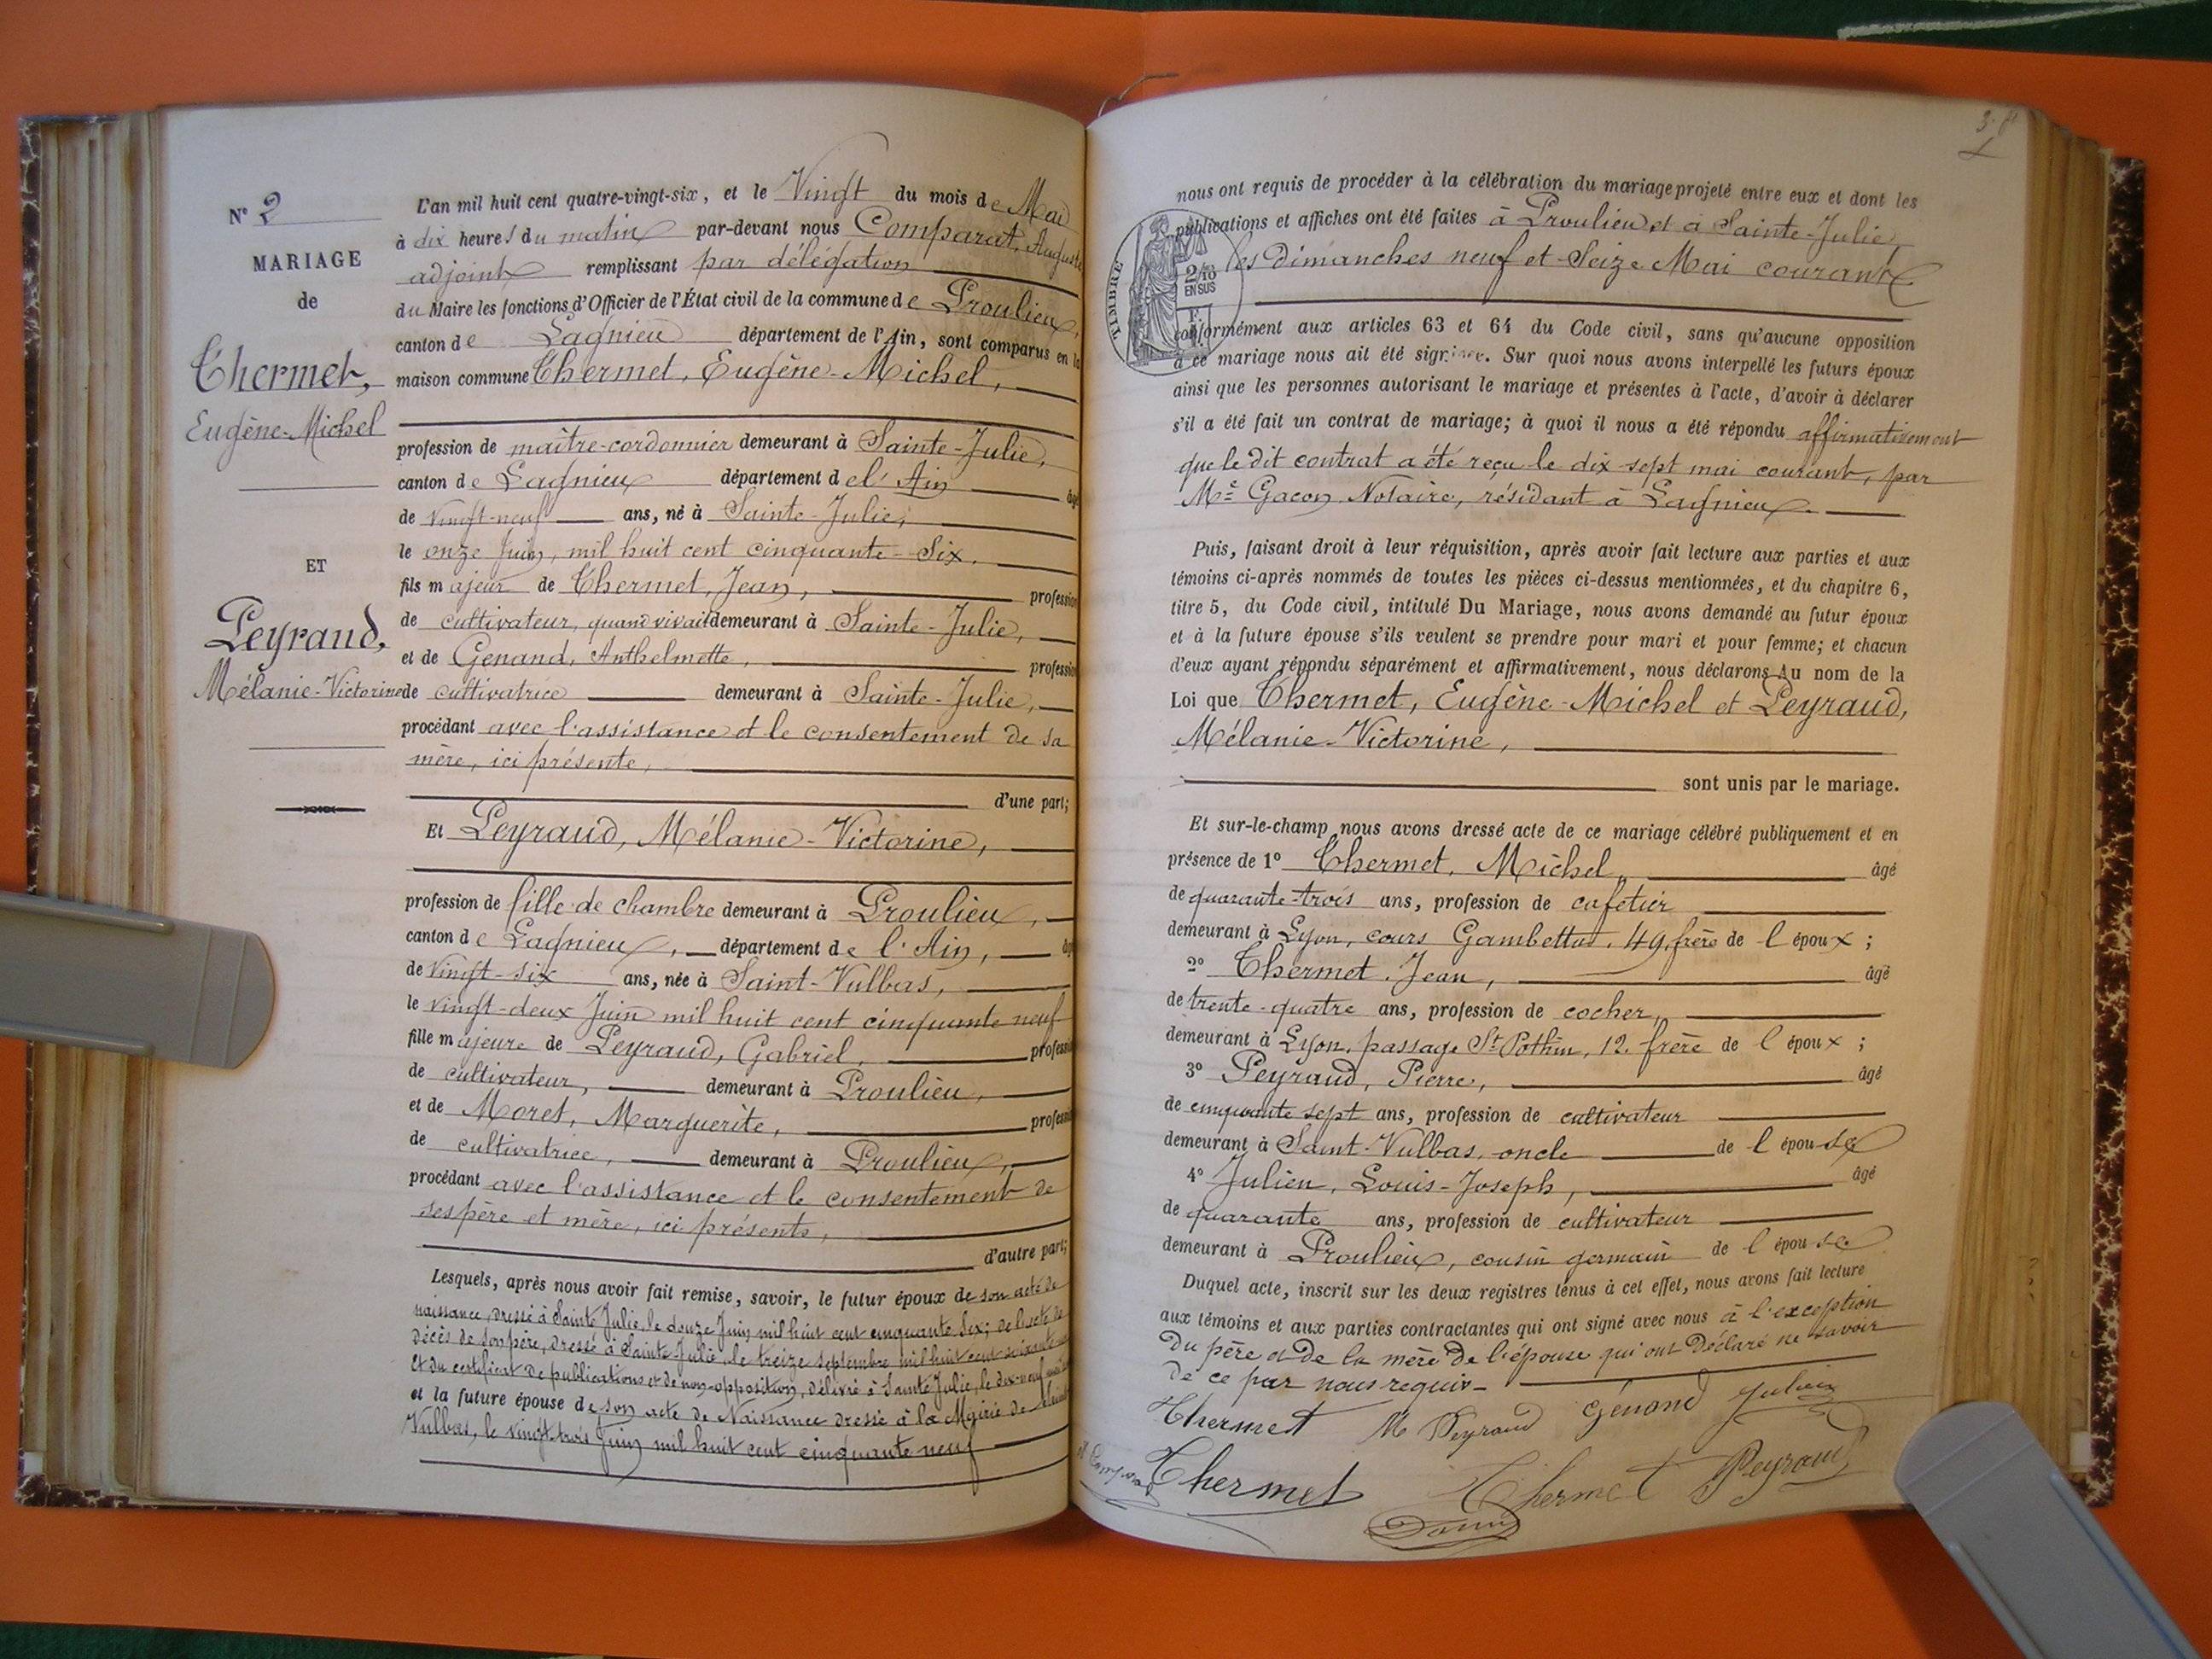 N° 2
MARIAGE
de
Thermet,
Eugène-Michel
ET
Peyraud,
Mélanie-Victorine
L'an mil huit cent quatre-vingt-six, et le Vingt du mois de Mai
à dix heures du matin par-devant nous Comparat, Auguste
adjoint remplissant par délégation
du Maire les fonctions d'Officier de l'État civil de la commune de Proulieu,
canton de Lagnieu département de l'Ain, sont comparus en la
maison commune Thermet, Eugène-Michel,
profession de maître-cordonnier demeurant à Sainte-Julie,
canton de Lagnieu département de l'Ain âgé
de vingt-neuf ans, né à Sainte-Julie,
le onze Juin, mil huit cent cinquante-Six,
fils majeur de Thermet, Jean, profession
de cultivateur, quand vivait demeurant à Sainte-Julie,
et de Genand, Anthelmette, profession
de cultivatrice demeurant à Sainte-Julie,
procédant avec l'assistance et le consentement de sa
mère, ici présente,
d'une part;
Et Peyraud, Mélanie-Victorine,
profession de fille de chambre demeurant à Proulieu,
canton de Lagnieu, département de l'Ain, âgé
de vingt-six ans, née à Saint-Vulbas,
le vingt-deux Juin mil huit cent cinquante neuf
fille majeure de Peyraud, Gabriel, profession
de cultivateur, demeurant à Proulieu,
et de Moret, Marguerite, profession
de cultivatrice, demeurant à Proulieu,
procédant avec l'assistance et le consentement de
ses père et mère, ici présents,
d'autre part;
Lesquels, après nous avoir fait remise, savoir, le futur époux de son acte de
naissance, dressé à Sainte Julie, le douze Juin mil huit cent cinquante Six; de l'acte de
décès de son père, dressé à Sainte-Julie, le treize septembre mil huit cent soixante
et du certificat de publications et de non-opposition, délivré à Sainte Julie, le dix-neuf mai
et la future épouse de son acte de Naissance dressé à la Mairie de Saint
Vulbas, le vingt-trois Juin mil huit cent cinquante neuf
nous ont requis de procéder à la célébration du mariage projeté entre eux et dont les
publications et affiches ont été faites à Proulieu et à Sainte-Julie,
les dimanches neuf et Seize Mai courant
TIMBRE
2/10
EN SUS
conformément aux articles 63 et 64 du Code civil, sans qu'aucune opposition
à ce mariage nous ait été signifiée. Sur quoi nous avons interpellé les futurs époux
ainsi que les personnes autorisant le mariage et présentes à l'acte, d'avoir à déclarer
s'il a été fait un contrat de mariage; à quoi il nous a été répondu affirmativement
que le dit contrat a été reçu le dix-sept mai courant, par
Me Gacon Notaire, résidant à Lagnieu.
Puis, faisant droit à leur réquisition, après avoir fait lecture aux parties et aux
témoins ci-après nommés de toutes les pièces ci-dessus mentionnées, et du chapitre 6,
titre 5, du Code civil, intitulé Du Mariage, nous avons demandé au futur époux
et à la future épouse s'ils veulent se prendre pour mari et pour femme; et chacun
d'eux ayant répondu séparément et affirmativement, nous déclarons Au nom de la
Loi que Thermet, Eugène-Michel et Peyraud,
Mélanie-Victorine,
sont unis par le mariage.
Et sur-le-champ nous avons dressé acte de ce mariage célébré publiquement et en
présence de 1° Thermet, Michel, âgé
de quarante-trois ans, profession de cafetier
demeurant à Lyon, cours Gambetta, 49, frère de l'époux;
2° Thermet, Jean, âgé
de trente-quatre ans, profession de cocher,
demeurant à Lyon, passage St Pothin, 12. frère de l'époux;
3° Peyraud, Pierre, âgé
de cinquante sept ans, profession de cultivateur
demeurant à Saint-Vulbas, oncle de l'épouse
4° Julien, Louis-Joseph, âgé
de quarante ans, profession de cultivateur
demeurant à Proulieu, cousin germain de l'épouse
Duquel acte, inscrit sur les deux registres tenus à cet effet, nous avons fait lecture
aux témoins et aux parties contractantes qui ont signé avec nous à l'exception
du père et de la mère de l'épouse qui ont déclaré ne savoir
de ce par nous requis-
Thermet M Peyraud Génand Julien
Thermet Thermet Peyraud